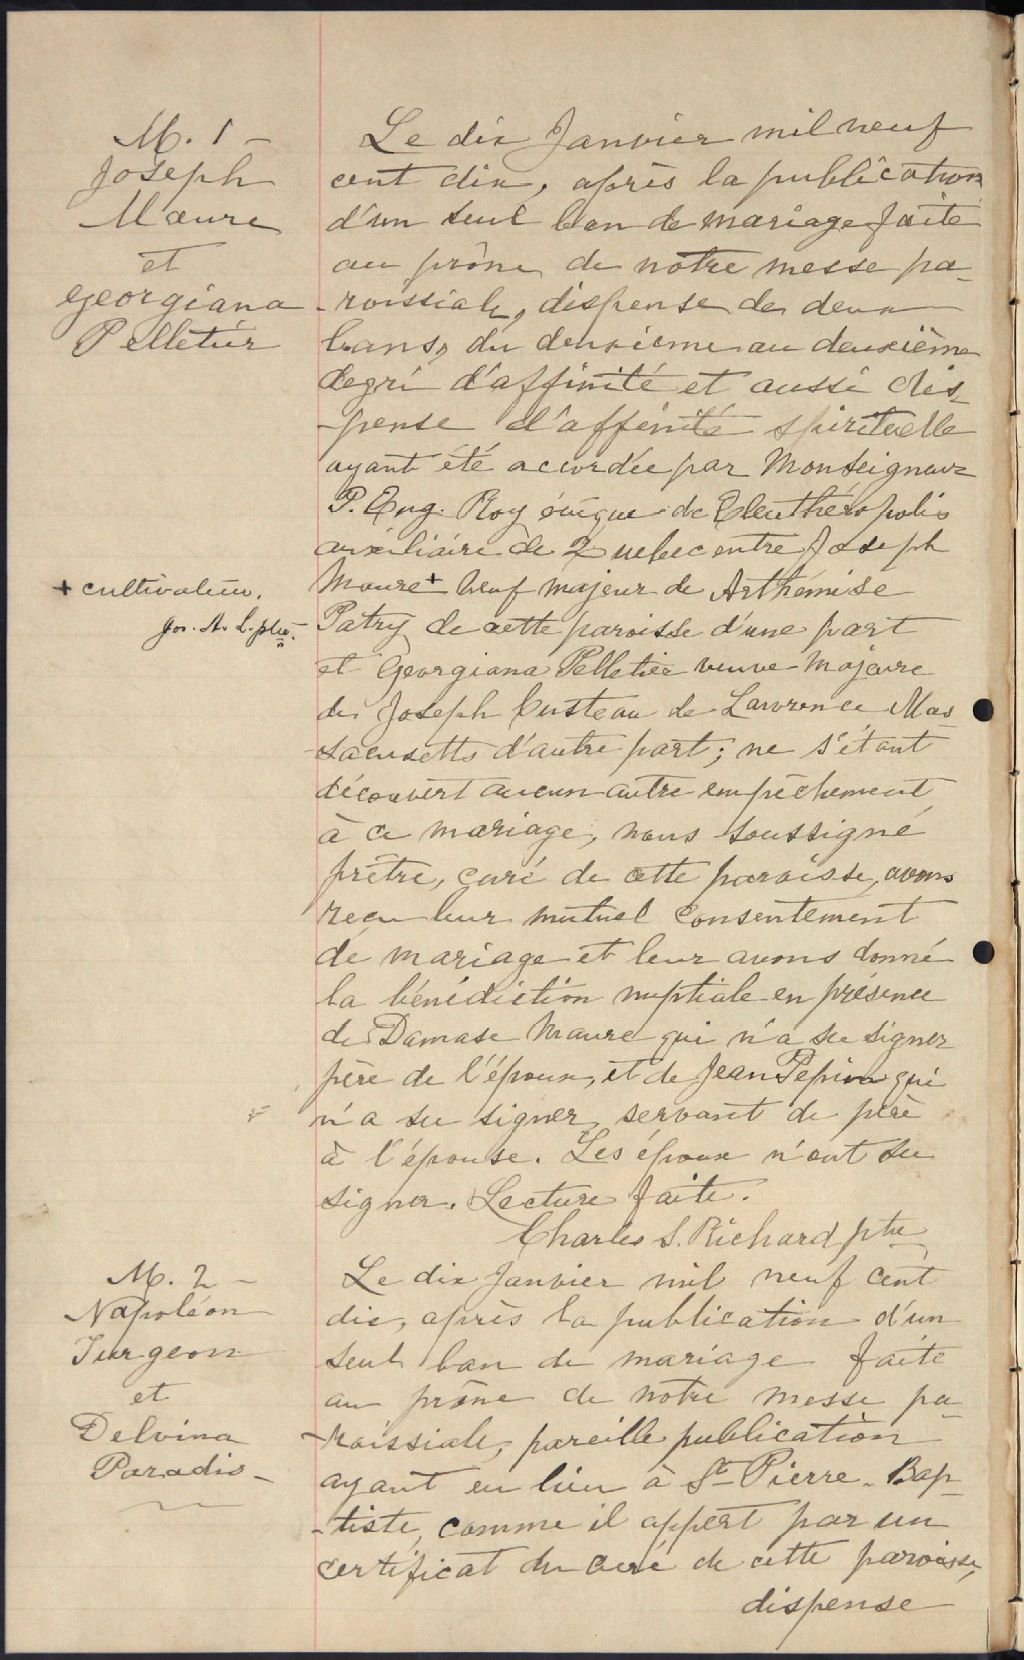 M. 1 –
Joseph
Maure
et
Georgiana
Pelletier
Le dix Janvier mil neuf
cent dix, après la publication
d'un seul ban de mariage faite
au prône de notre messe pa-
-roissiale, dispense de deux
bans, du deuxième au deuxième
degré d'affinité et aussi dis-
-pense d'affinité spirituelle
ayant été accordée par Monseigneur
P. Eug. Roy évêque de Eleuthéropolis
auxiliaire de Québec entre Joseph
Maure + veuf majeur de Arthémise
+ cultivateur.
Jos. A. L. ptre.
Patry de cette paroisse d'une part
et Georgiana Pelletier veuve majeure
de Joseph Custeau de Lawrence Mas-
-sacusetts d'autre part; ne s'étant
découvert aucun autre empêchement
à ce mariage, nous soussigné
prêtre, curé de cette paroisse, avons
reçu leur mutuel consentement
de mariage et leur avons donné
la bénédiction nuptiale en présence
de Damase Maure qui n'a su signer
père de l'époux, et de Jean Pepin qui
n'a su signer, servant de père
à l'épouse. Les époux n'ont su
signer. Lecture faite.
Charles S. Richard ptre
M. 2 –
Napoléon
Turgeon
et
Delvina
Paradis –
Le dix Janvier mil neuf cent
dix, après la publication d'un
seul ban de mariage faite
au prône de notre messe pa-
-roissiale, pareille publication
ayant eu lieu à St-Pierre-Bap-
-tiste, comme il appert par un
certificat du curé de cette paroisse,
dispense